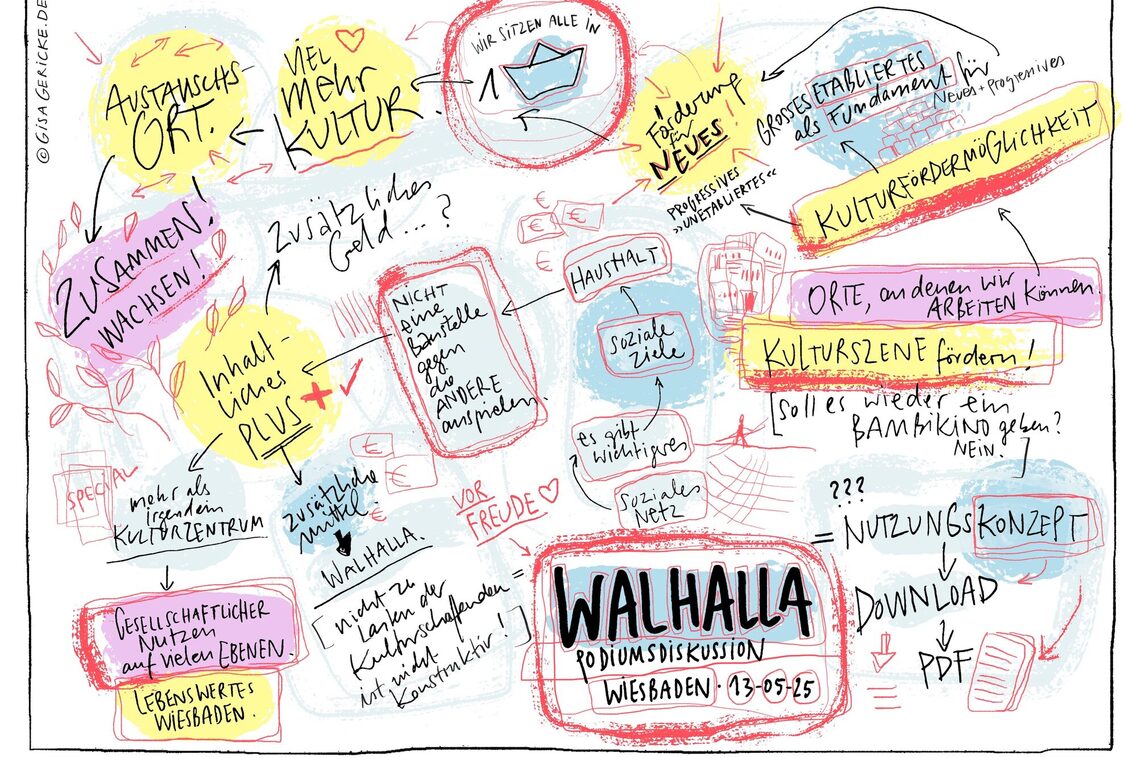 © GISA GERICKE.DE
AUSTAUSCHS-
ORT.
VIEL
MEHR
KULTUR.
WIR SITZEN ALLE IN
1
Förderung
für
NEUES!
PROGRESSIVES
»UNETABLIERTES«
GROSSES ETABLIERTES
als Fundament für
Neues + Progressives
KULTURFÖRDERMÖGLICHKEIT
ZUSAMMEN!
WACHSEN!
ZUSÄTZLICHES
Geld....?
HAUSHALT
Soziale
Ziele
es gibt
wichtigeres
Soziales
Netz
NICHT
eine
Baustelle
gegen
die
ANDERE
ausspielen.
ORTE, an denen wir
ARBEITEN können.
KULTURSZENE fördern!
[Soll es wieder ein
BAMBIKINO geben?
NEIN.]
Inhalt-
liches
PLUS
SPECIAL
mehr als
irgendein
KULTURZENTRUM
GESELLSCHAFTLICHER
Nutzen
auf vielen EBENEN.
LEBENSWERTES
WIESBADEN.
zusätzliche
Mittel.
WALHALLA.
[nicht zu
Lasten der
Kulturschaffenden
ist nicht
konstruktiv!]
VOR
FREUDE
=
WALHALLA
PODIUMSDISKUSSION
WIESBADEN · 13-05-25
???
= NUTZUNGSKONZEPT
DOWNLOAD
PDF